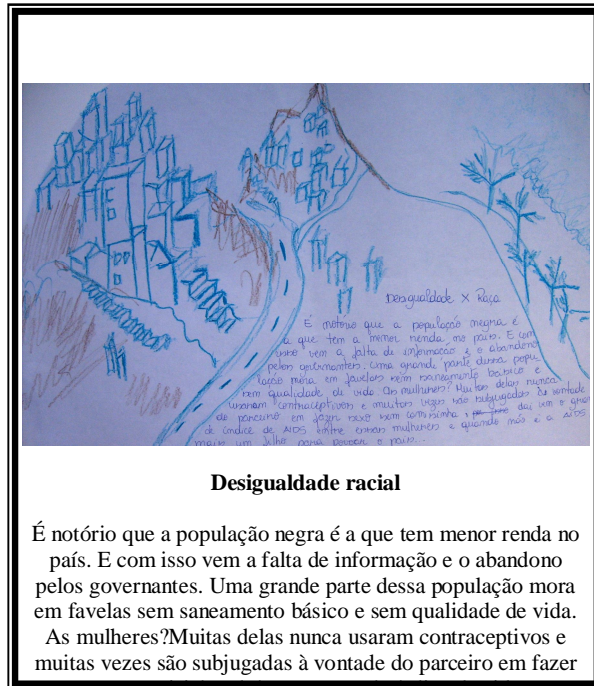 Desigualdade X Raça
É notório que a população negra é
a que tem a menor renda, no país. E com
isso vem a falta de informação e o abandono
pelos governantes. Uma grande parte dessa popu
lação mora em favelas sem saneamento básico e
sem qualidade de vida. As mulheres? Muitas delas nunca
usaram contraceptivos e muitas vezes são subjugadas à vontade
do parceiro em fazer sexo sem camisinha e daí vem o grande
índice de AIDS entre essas mulheres e quando não é a AIDS
mais um filho para povoar o país...
Desigualdade racial
É notório que a população negra é a que tem menor renda no
país. E com isso vem a falta de informação e o abandono
pelos governantes. Uma grande parte dessa população mora
em favelas sem saneamento básico e sem qualidade de vida.
As mulheres?Muitas delas nunca usaram contraceptivos e
muitas vezes são subjugadas à vontade do parceiro em fazer